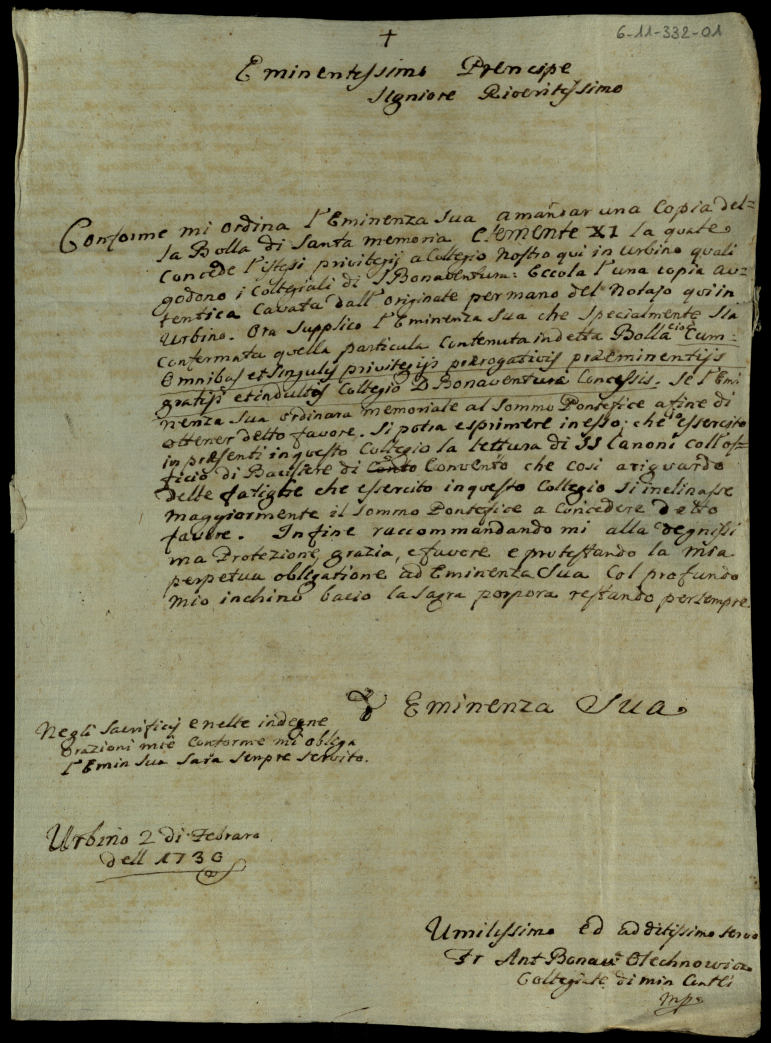 6-11-332-01
+
Eminentissimo Prencipe
Signiore Riveritissimo
Conforme mi ordina l'Eminenza Sua a mandar una Copia del=
la Bolla di Santa memoria Clemente XI la quale
Concede l'istessi privilegij a Collegio Nostro qui in Urbino quali
godono i Collegiali di S Bonaventura: Eccola l'una copia au=
tentica Cavata dall'originale per mano del Notajo qui in
Urbino. Ora Supplico l'Eminenza Sua che Specialmente Sia
Confermata quella particula Contenuta in detta Bolla Cum
Omnibus et Singulis privilegijs prærogativis præeminentijs
gratijs et indultis Collegio D Bonaventuræ Concessis. Se l'Emi
nenza Sua ordinara memoriale al Sommo Pontefice a fine di
ottener detto favore. Si potra esprimere in esso; che io essercito
in presenti in questo Collegio la lettura di SS Canoni coll'of=
ficio di di Convento che cosi a riguardo
delle fatighe che essercito in questo Collegio Si inclinasse
maggiormente il Sommo Pontefice a Concedere detto
favore. In fine raccommandando mi alla degnissi
ma Protezione, grazia, e favore e protestando la mia
perpetua obligatione ad Eminenza Sua Col profundo
mio inchino bacio la Sagra porpora restando per sempre.
Eminenza Sua
Negli Sacrificij e nelle indegne
orazioni mie Conforme mi obliga
l'Emin Sua Sara Senpre Servito.
Urbino 2 di Febraro
dell 1730
Umilissimo ed additissimo servo
Fr Ant Bonave Olechnowicz
Collegiale di min Cntli
mp